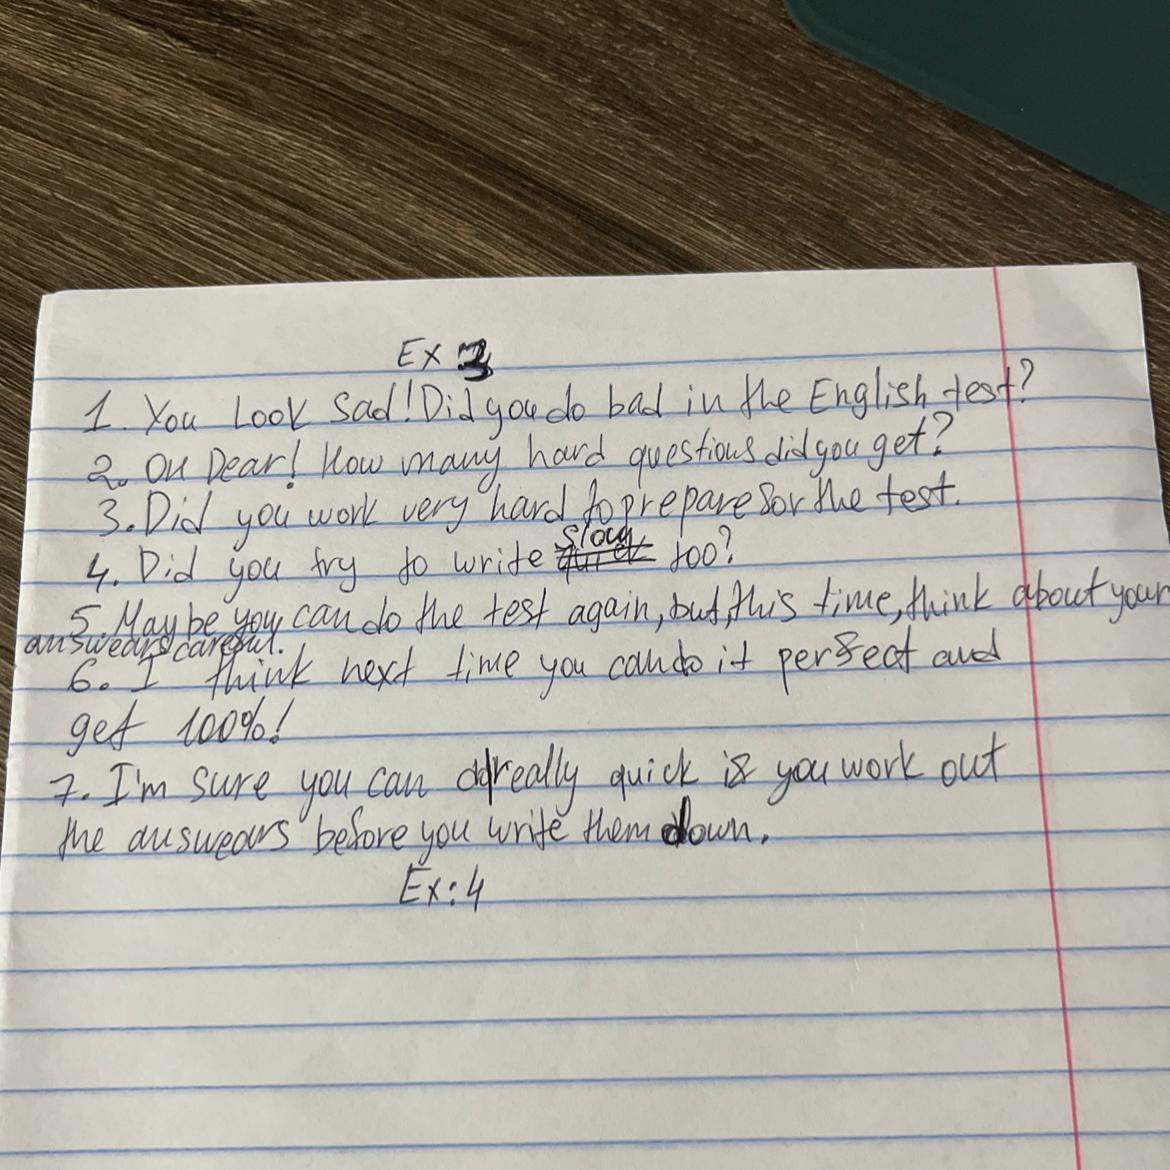 Ex 3
1. You Look Sad! Did you do bad in the English test?
2. Oh Dear! How many hard questions did you get?
3. Did you work very hard to prepare for the test.
4. Did you try to write slow too?
5. Maybe you can do the test again, but, this time, think about your
answears careful.
6. I think next time you can do it perfect and
get 100%!
7. I'm sure you can do really quick if you work out
the answears before you write them down.
Ex: 4